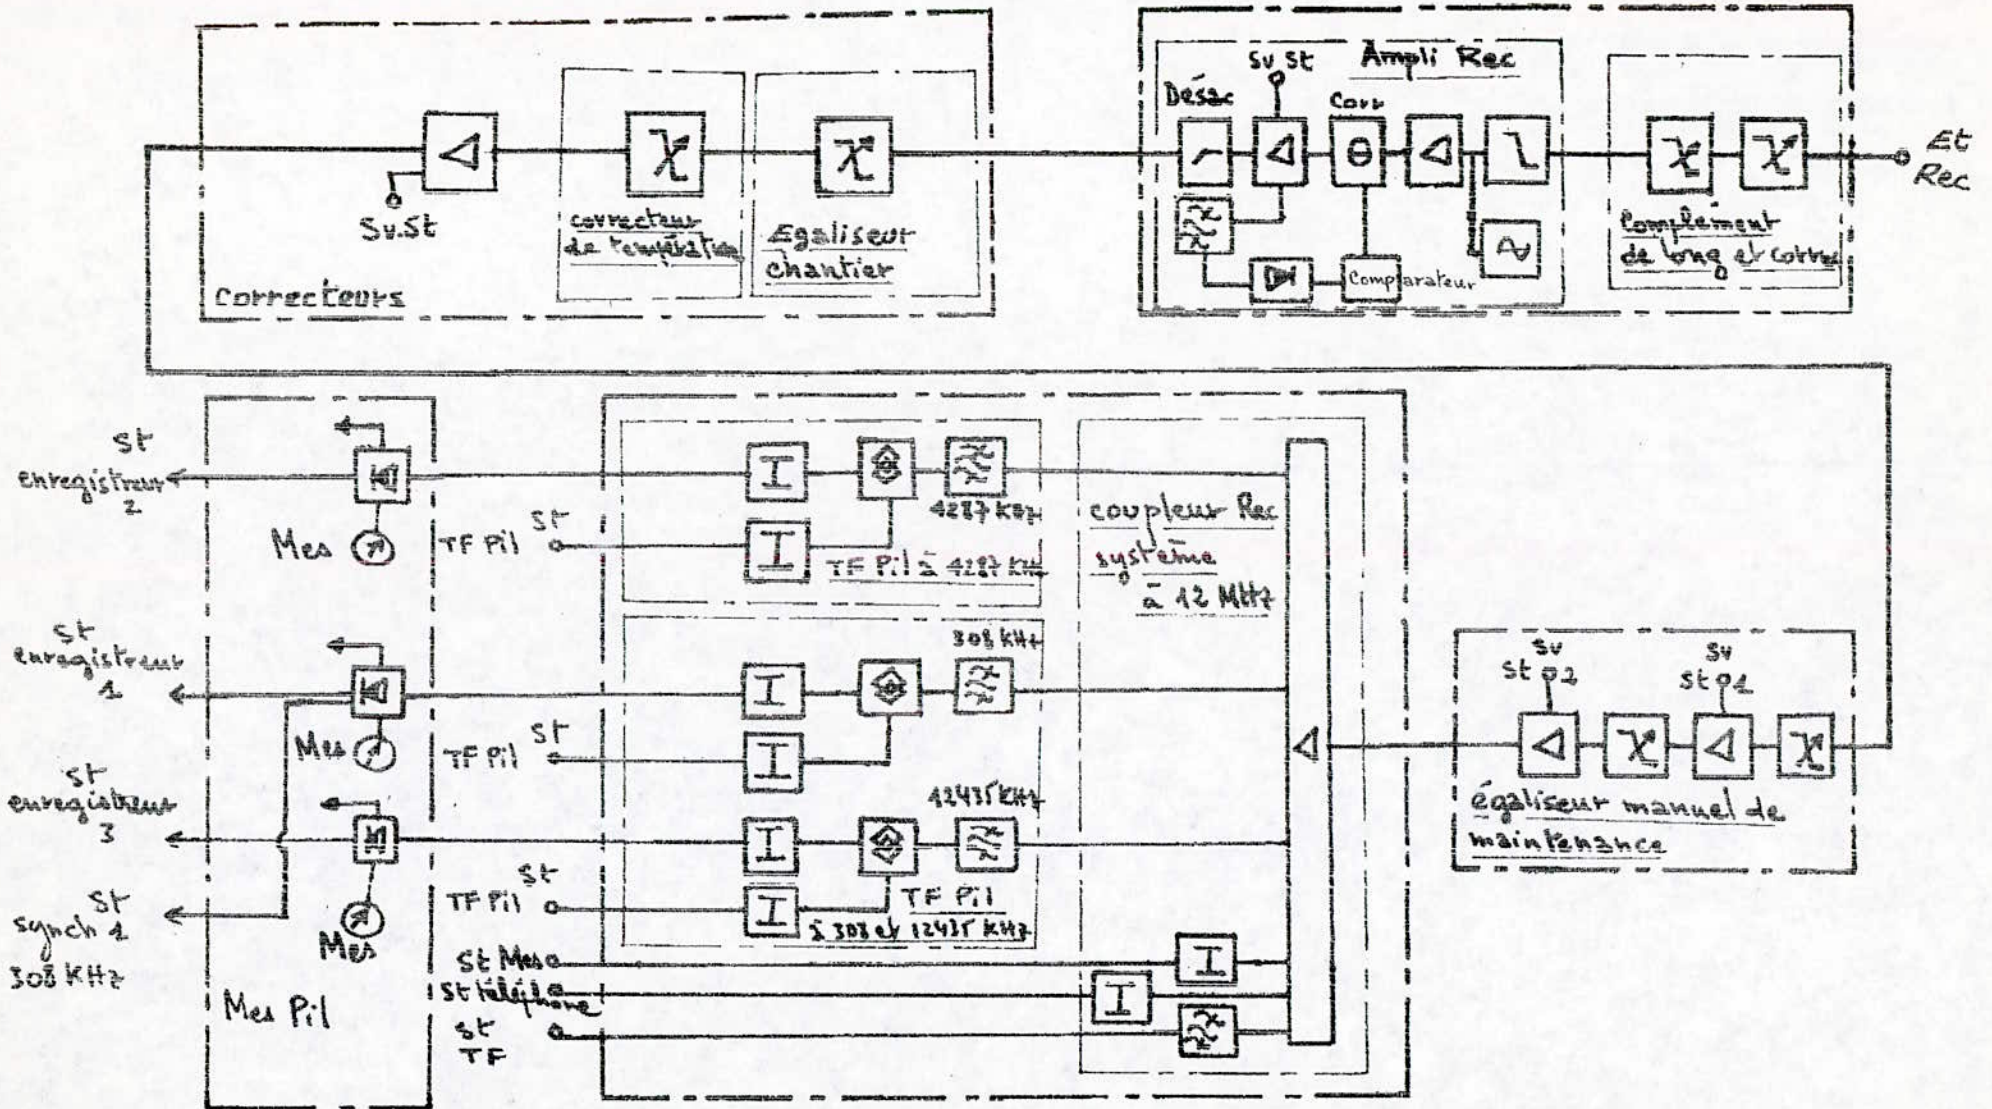 Sv.St
correcteur
de température
Egaliseur
chantier
correcteurs
Désac
Sv St
Ampli Rec
Corr
Comparateur
Complément
de long et corr
Et
Rec
St
enregistreur
2
Mes
TF Pil
St
4287 KHz
TF Pil à 4287 KHz
coupleur Rec
système
à 12 MHz
St
enregistreur
1
Mes
TF Pil
St
308 KHz
St
enregistreur
3
Mes
TF Pil
St
12435 KHz
TF Pil
à 308 et 12435 KHz
St
synch 1
308 KHz
Mes Pil
St Mes
St téléphone
St
TF
Sv
St 2
Sv
St 1
égaliseur manuel de
maintenance